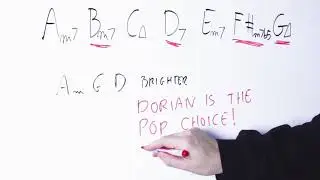 Am7 Bm7 C△ D7 Em7 F#m7b5 G△
Am G D BRIGHTER
DORIAN IS THE
POP CHOICE!